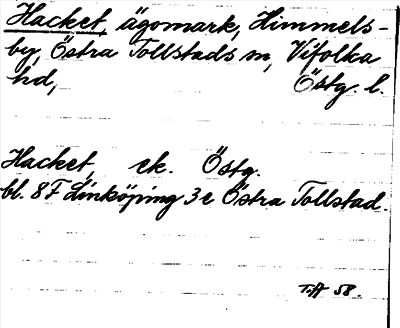 Hacket, ägomark, Himmels-
by, Östra Tollstads sn, Vifolka
hd, Östg. l.
Hacket, ek. Östg.
bl. 8F Linköping 3e Östra Tollstad.
58.